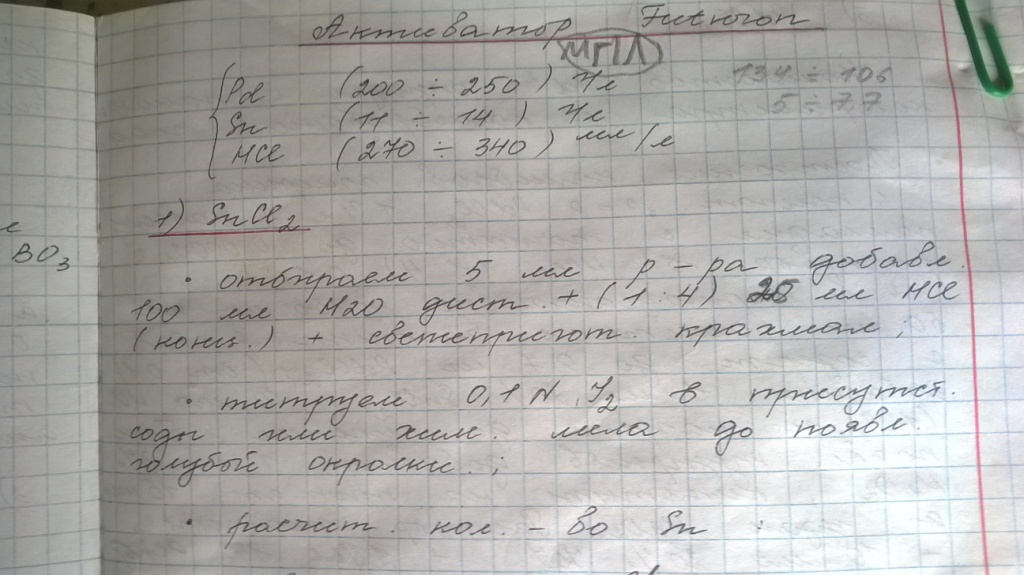 Активатор Futuron
мг/л
Pd (200 ÷ 250) г/л 134 ÷ 106
Sn (11 ÷ 14) г/л 5 ÷ 7.7
HCl (270 ÷ 340) мл/л
1) SnCl2
BO3
• отбираем 5 мл р-ра добавл.
100 мл H2O дист. + (1:4) 25 мл HCl
(конц.) + свежепригот. крахмал;
• титруем 0,1 N J2 в присутст.
соды или хим. мела до появл.
голубый окраски.;
• расчит. кол-во Sn :